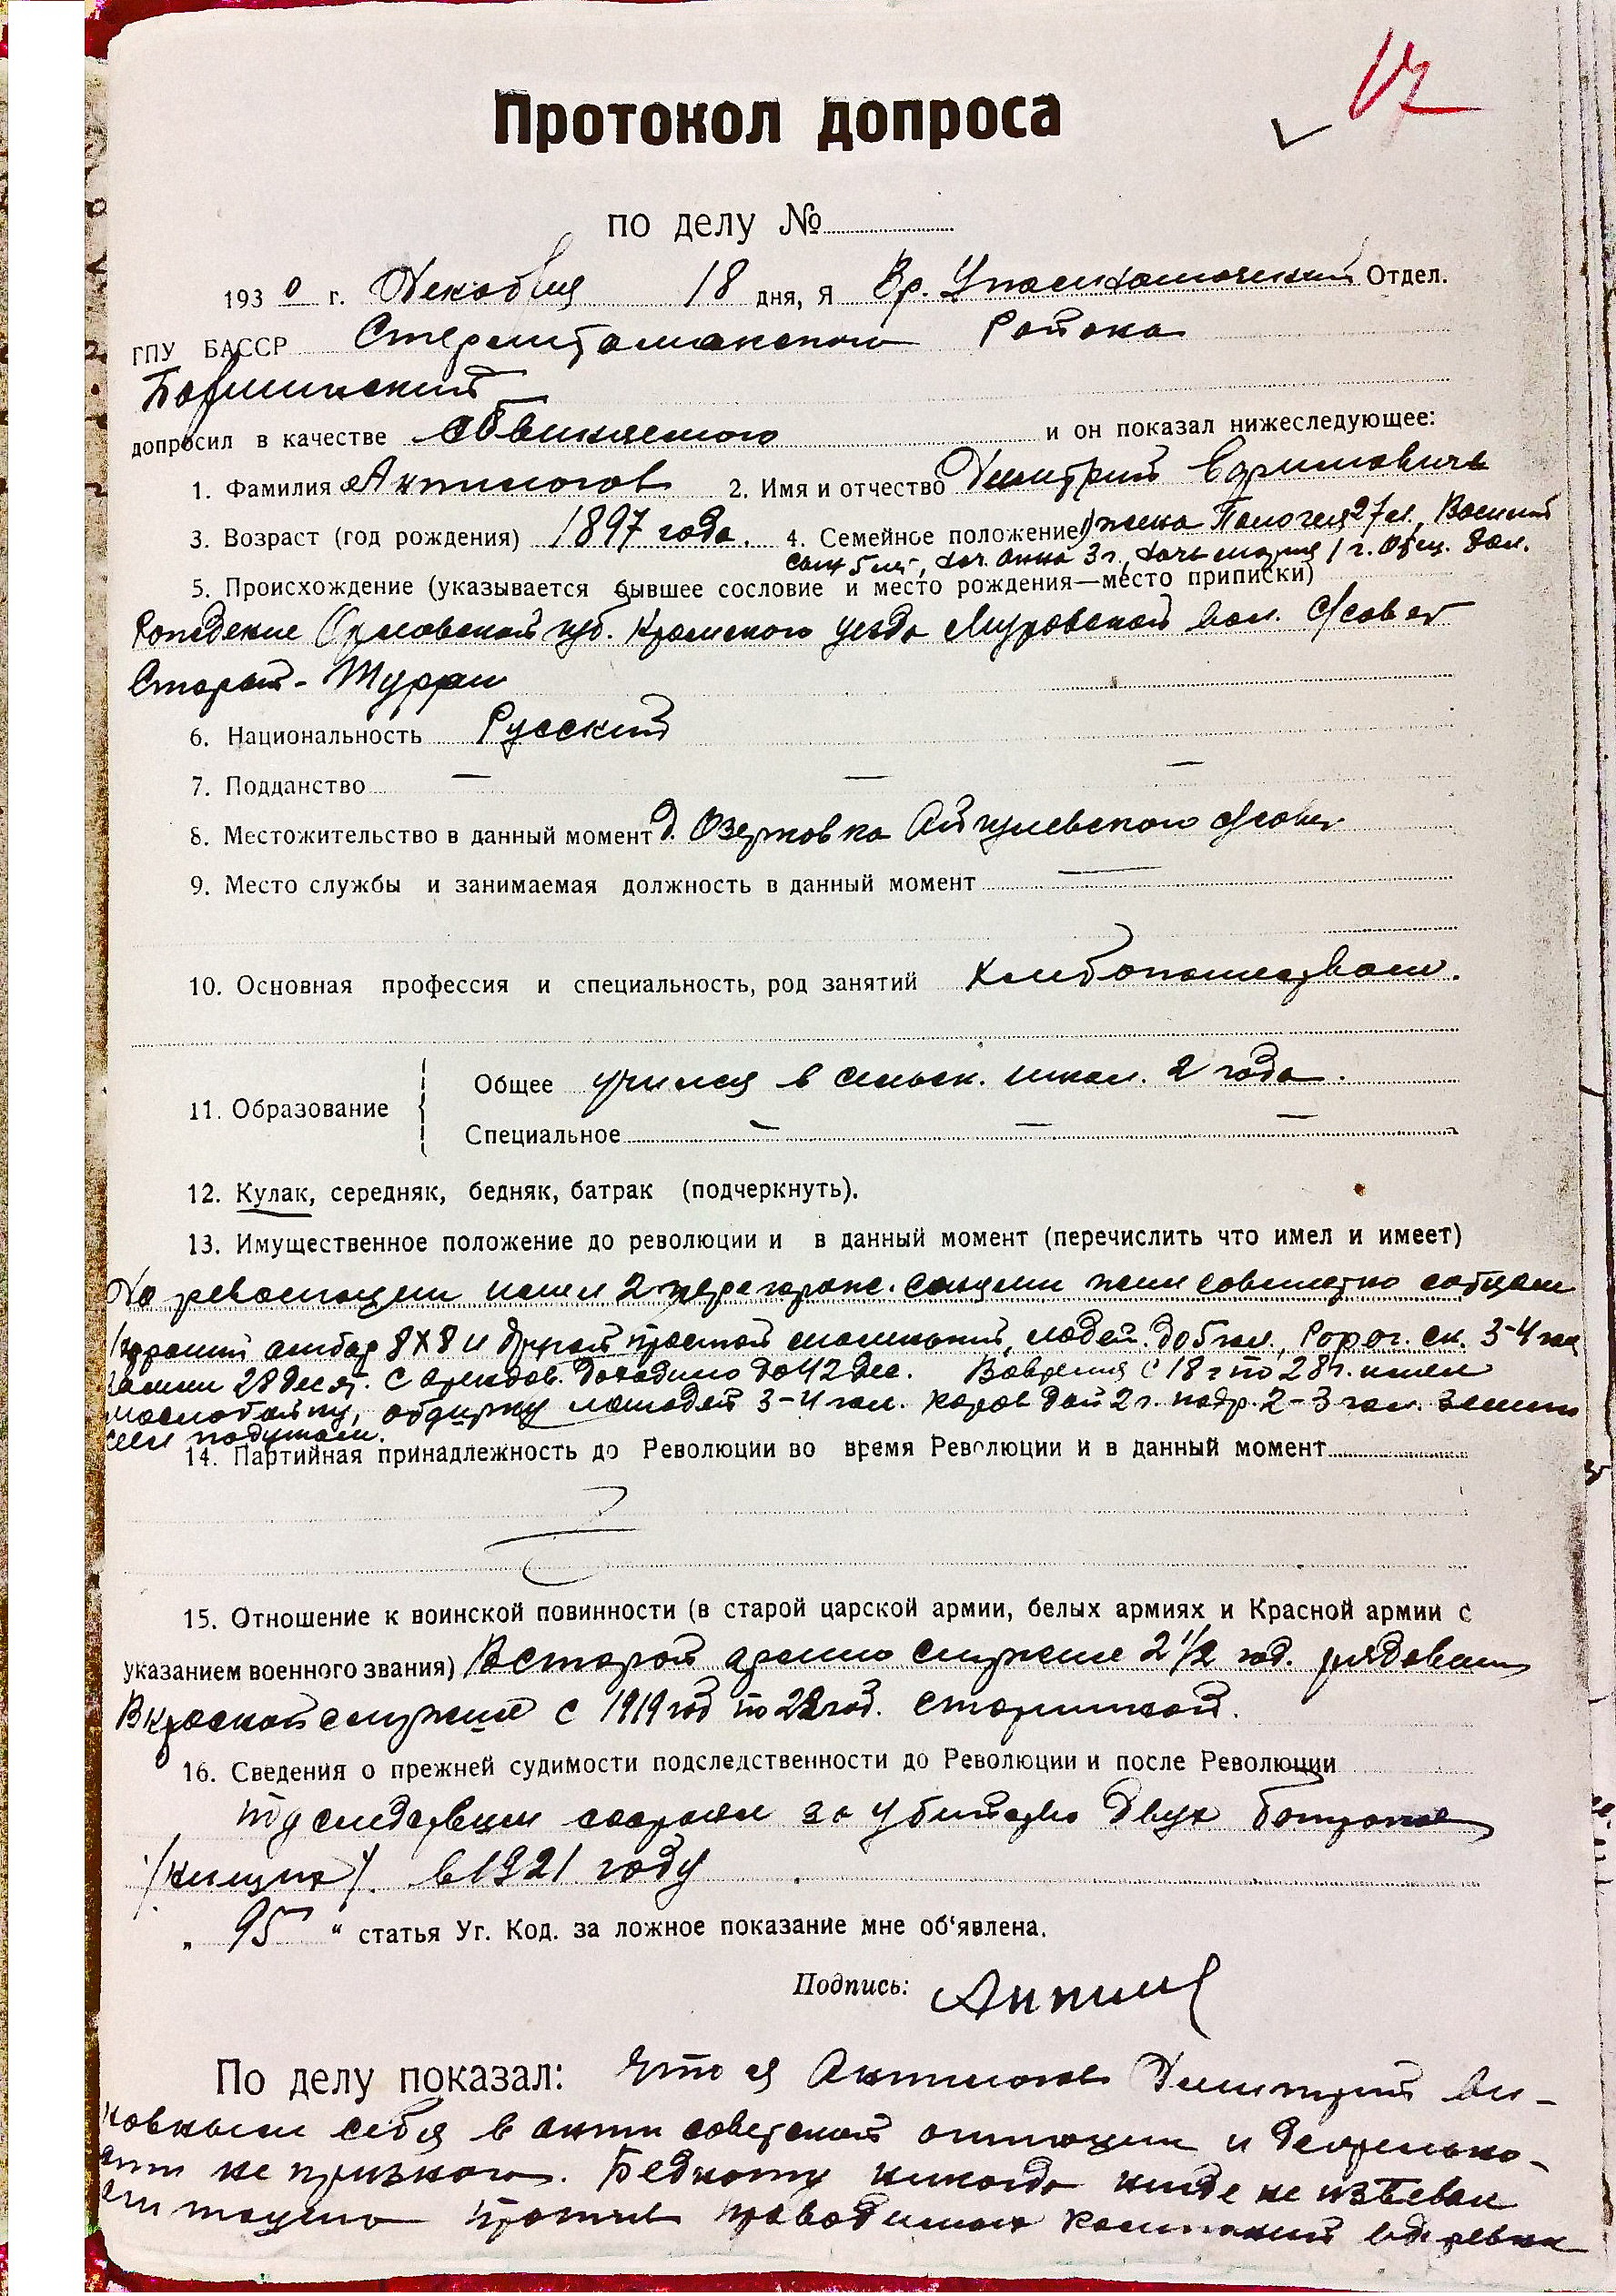 17
Протокол допроса
по делу №
1930 г. Декабря 18 дня, я Вр. Уполномоченный Отдел.
ГПУ БАССР Стерлитамакского Района
допросил в качестве обвиняемого и он показал нижеследующее:
1. Фамилия Анпилогов 2. Имя и отчество Дмитрий Ефимович
3. Возраст (год рождения) 1897 года. 4. Семейное положение жена 27 л., Василий
сын 5 лет, доч. Анна 3 г., дочь Мария 1 г.
5. Происхождение (указывается бывшее сословие и место рождения—место приписки)
Рождение Орловской губ. Кромского уезда вол. с/совет
Старой-
6. Национальность Русский
7. Подданство — — —
8. Местожительство в данный момент д. Озерковка Айгулевского с/совет
9. Место службы и занимаемая должность в данный момент —
10. Основная профессия и специальность, род занятий Хлебопашеством.
11. Образование
Общее учился в сельск. школ. 2 года.
Специальное — — —
12. Кулак, середняк, бедняк, батрак (подчеркнуть).
13. Имущественное положение до революции и в данный момент (перечислить что имел и имеет)
До революции имел 2 жили совместно с отцом
амбар 8х8 и другой простой маленький, лошадей до 6 гол., Рогог. ск. 3-4 гол
28 десят. с арендов. доходило до 42 дес. Вовремя с 18 г по 28 г. имел
маслобойку, обдирку лошадей 3-4 гол. коров дой 2 г. подр. 2-3 гол. земли
14. Партийная принадлежность до Революции во время Революции и в данный момент
15. Отношение к воинской повинности (в старой царской армии, белых армиях и Красной армии с
указанием военного звания) В старой армии служил 2 1/2 год. рядовым
В красной служил с 1919 год по 22 год. старшиной.
16. Сведения о прежней судимости подследственности до Революции и после Революции
под следствием состоял за убийство двух
в 1921 году
„ 95 “ статья Уг. Код. за ложное показание мне об‘явлена.
Подпись: Анпил
По делу показал: Что я Анпилогов Дмитрий ви-
новным себя в анти советской агитации и
не признаю. Бедноту никогда нигде не
против проводимых компаний в деревни